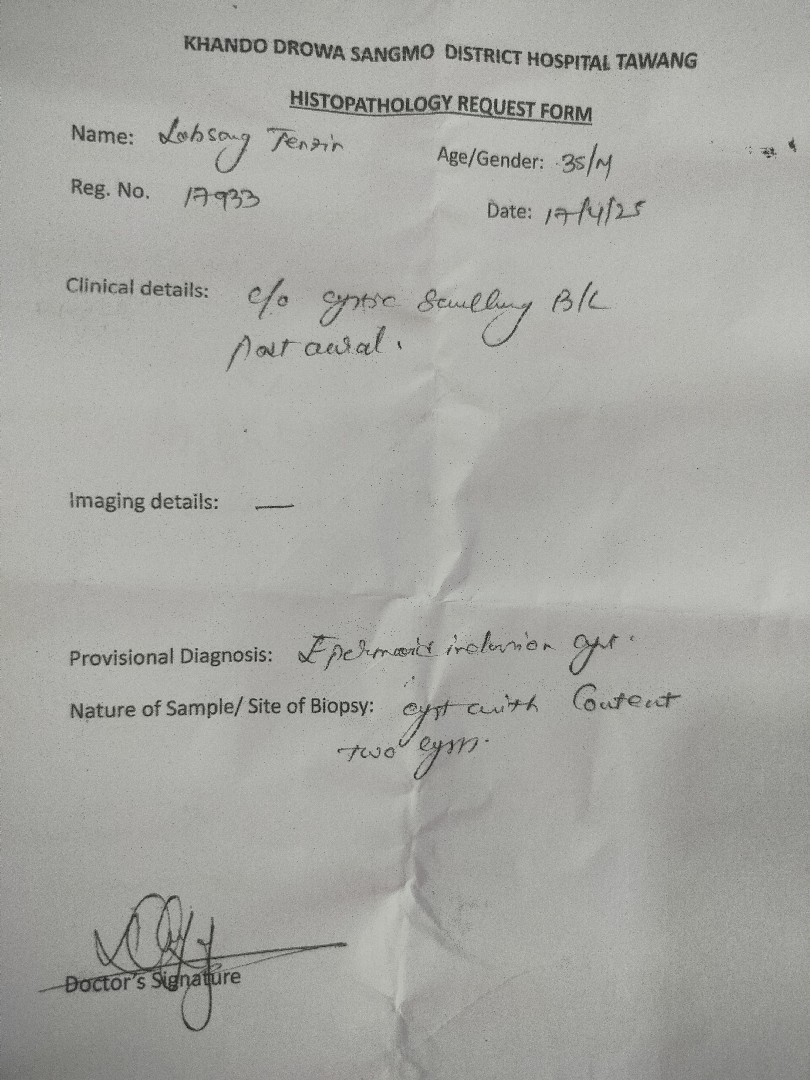 KHANDO DROWA SANGMO DISTRICT HOSPITAL TAWANG
HISTOPATHOLOGY REQUEST FORM
Name: Lobsang Tenzin
Age/Gender: 35/M
Reg. No. 17933
Date: 17/4/25
Clinical details: c/o cystic Swelling B/L
Post aural.
Imaging details: —
Provisional Diagnosis: Epermoid inclusion cyst.
Nature of Sample/ Site of Biopsy: cyst with Content
two cysts.
Doctor's Signature